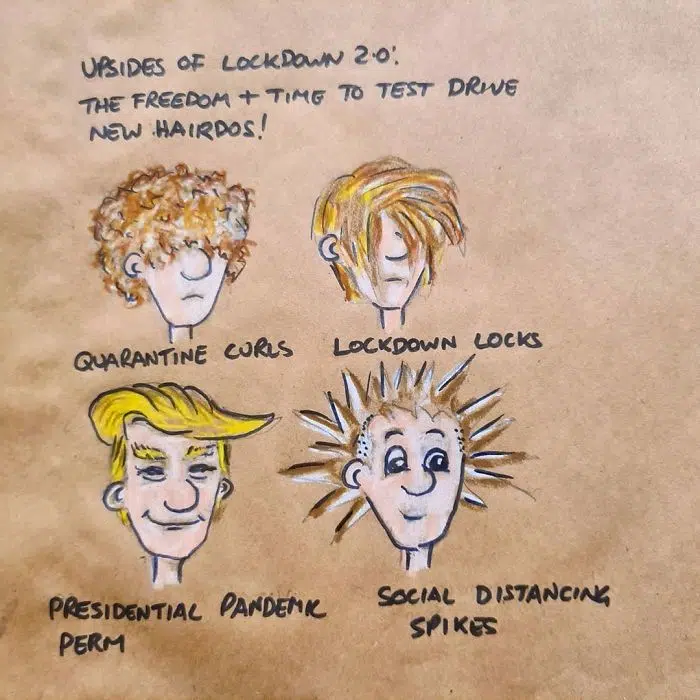 UPSIDES OF LOCKDOWN 2.0:
THE FREEDOM + TIME TO TEST DRIVE
NEW HAIRDOS!
QUARANTINE CURLS
LOCKDOWN LOCKS
PRESIDENTIAL PANDEMIC
PERM
SOCIAL DISTANCING
SPIKES